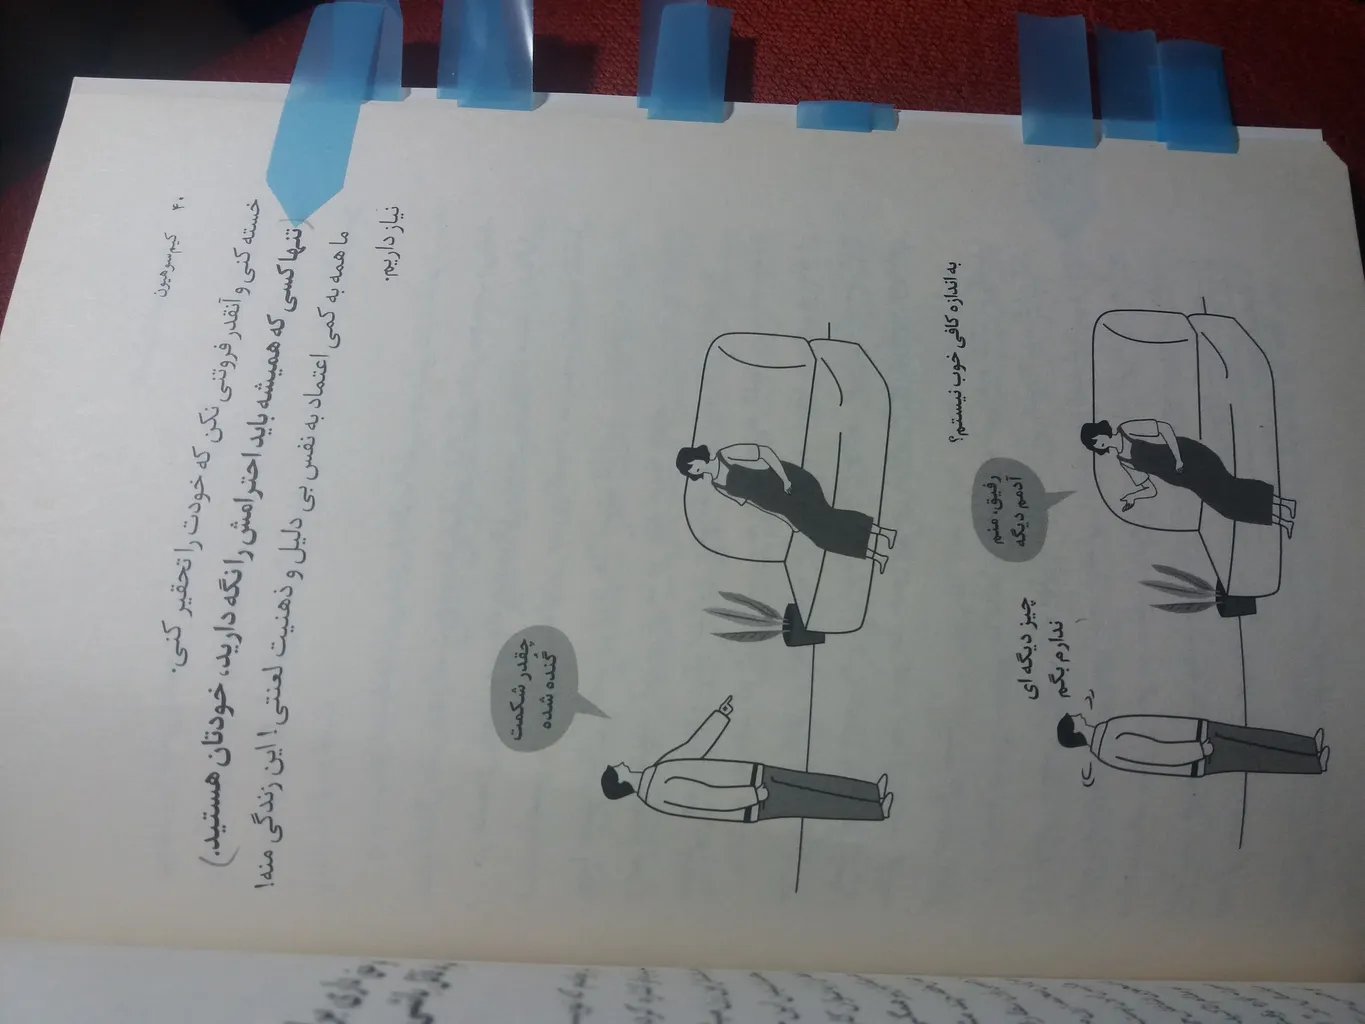 ۴۰ کیم سوهیون
خسته کنی و آنقدر فروتنی نکن که خودت را تحقیر کنی.
(تنها کسی که همیشه باید احترامش را نگه دارید، خودتان هستید.)
ما همه به کمی اعتماد به نفس بی دلیل و ذهنیت لعنتی! این زندگی منه!
نیاز داریم.
چقدر شکمت
گُنده شده
به اندازه کافی خوب نیستم؟
رفیق، منم
آدمم دیگه
چیز دیگه ای
ندارم بگم